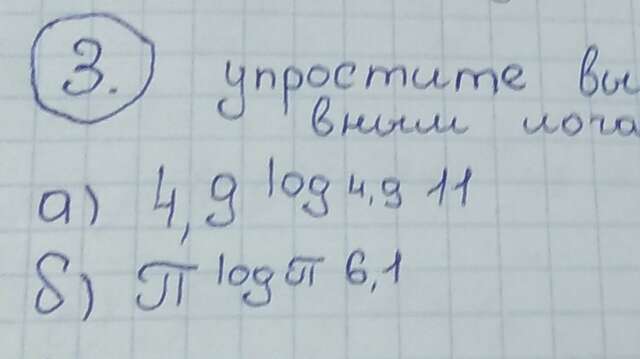 3. упростите вы
вным лога
а) 4,9 log 4,9 11
б) π log π 6,1